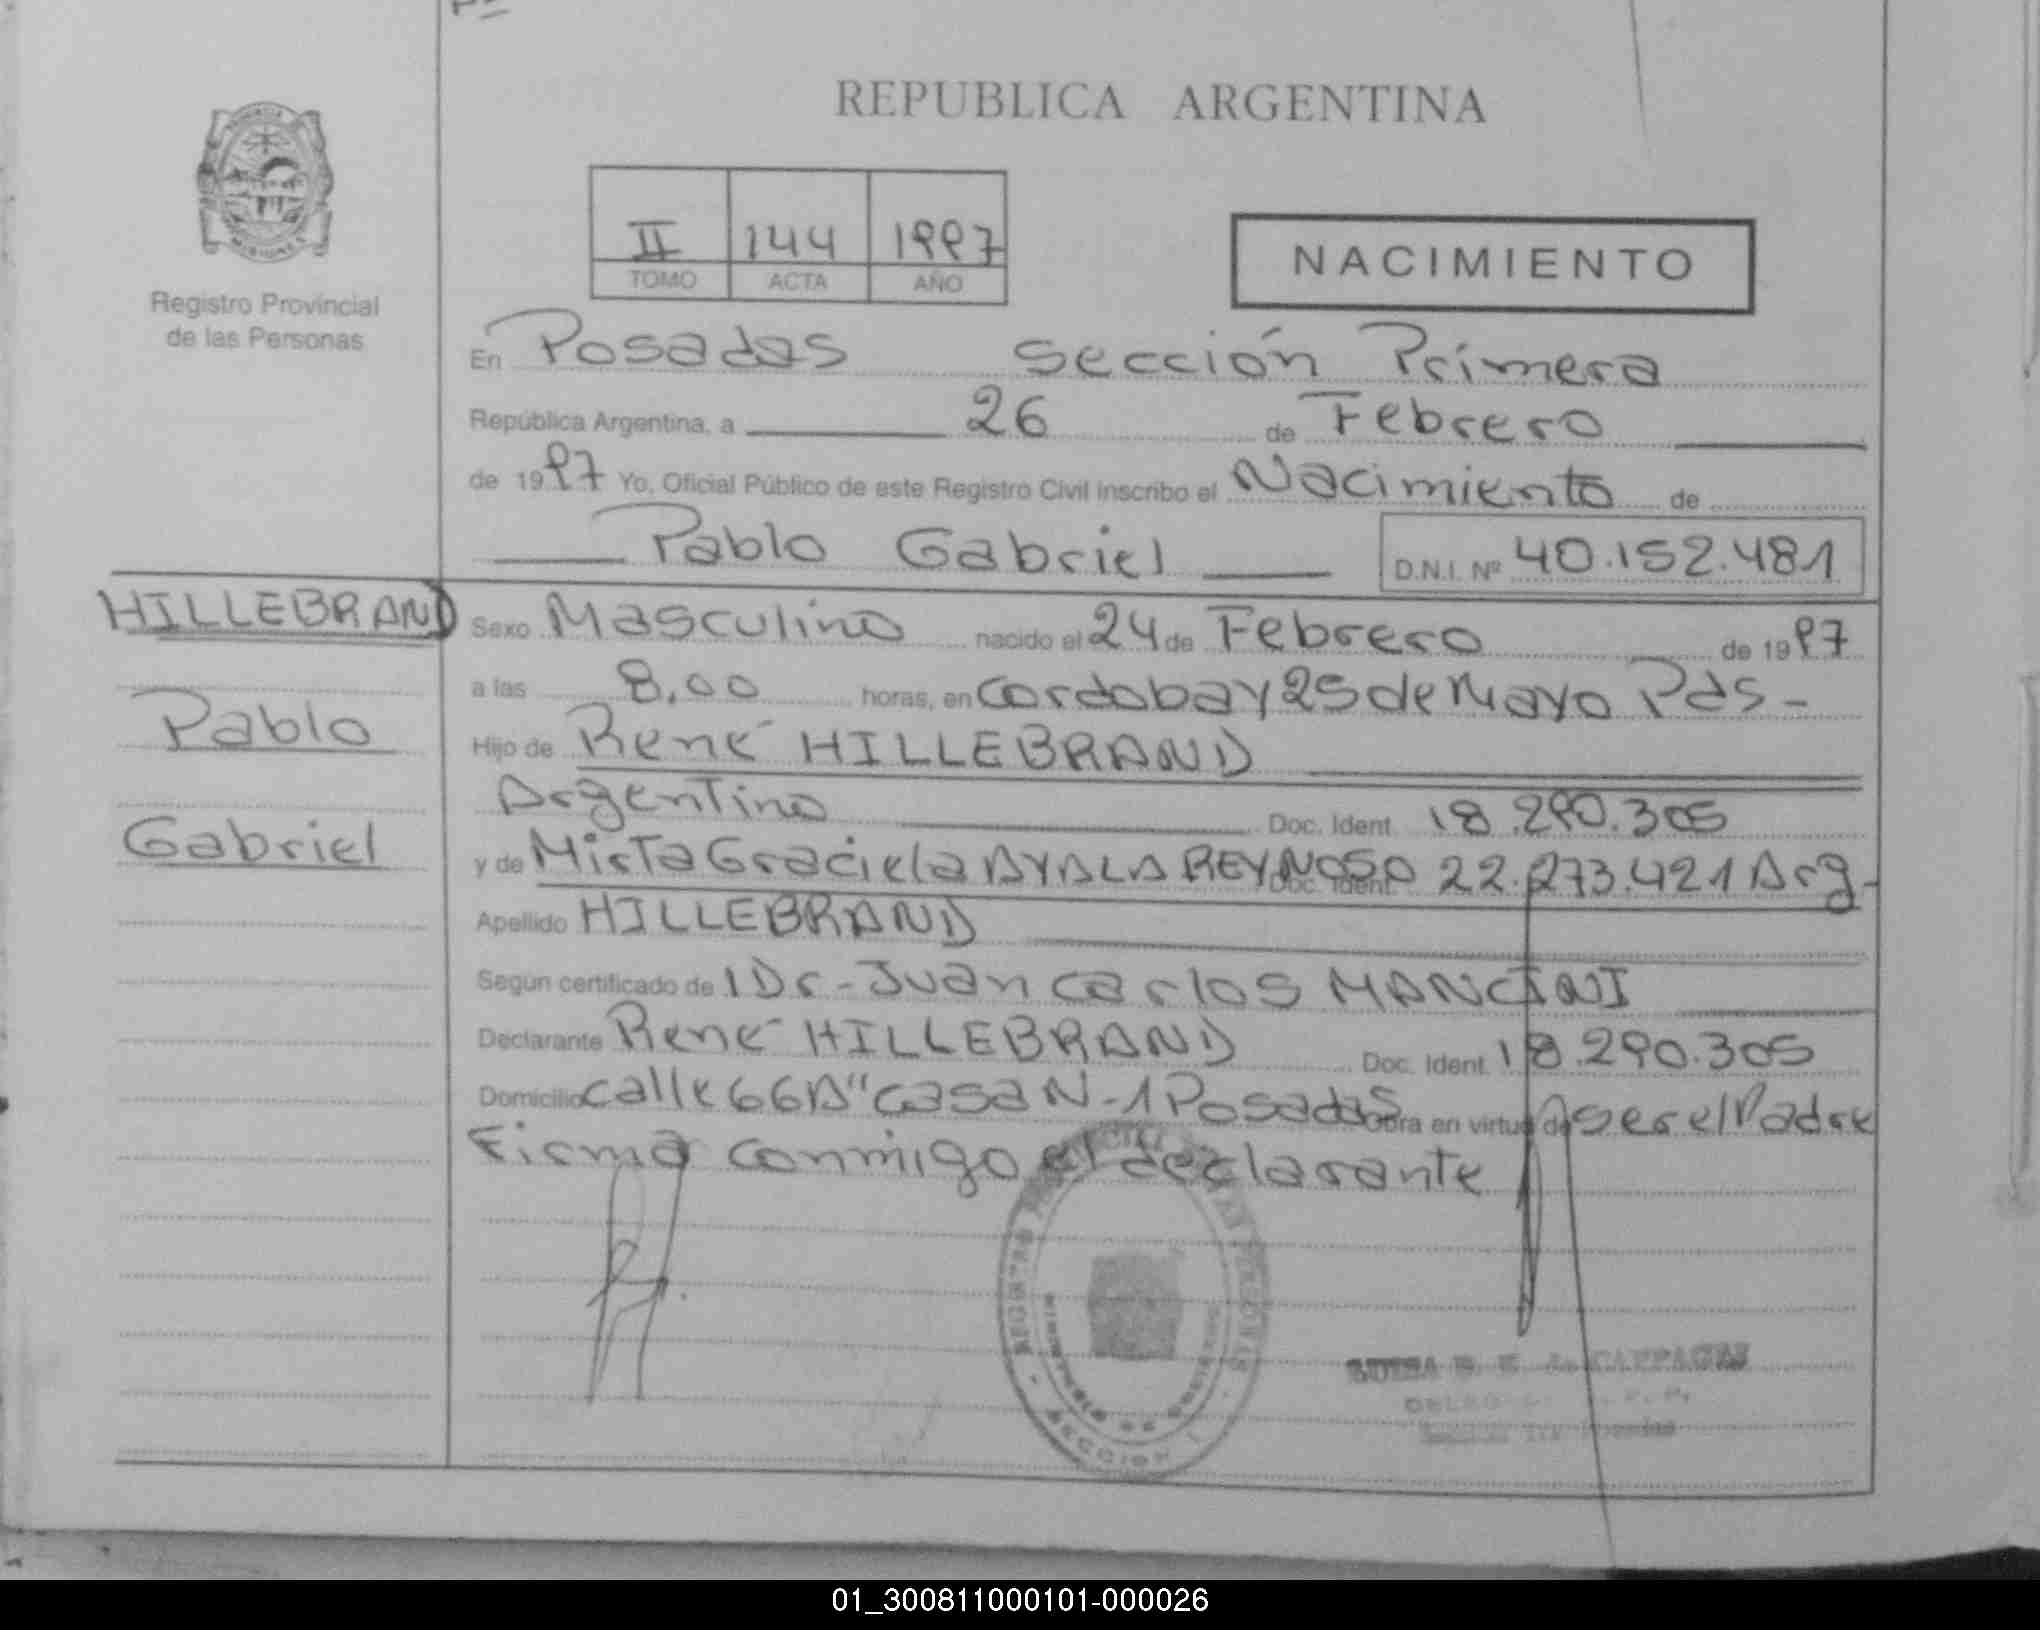 REPUBLICA ARGENTINA
MISIONES
Registro Provincial
de las Personas
II 144 1997
TOMO ACTA AÑO
NACIMIENTO
En Posadas Sección Primera
República Argentina, a 26 de Febrero
de 1997 Yo, Oficial Público de este Registro Civil inscribo el Nacimiento de
Pablo Gabriel D.N.I. Nº 40.152.481
HILLEBRAND
Pablo
Gabriel
Sexo Masculino nacido el 24 de Febrero de 1997
a las 8,00 horas, en Cordoba y 25 de Mayo Pds-
Hijo de René HILLEBRAND
Argentino Doc. Ident. 18.290.305
y de Mirta Graciela AYALA REYNOSO Doc. Ident. 22.273.421 Arg-
Apellido HILLEBRAND
Según certificado de 1 Dr- Juan Carlos MANCINI
Declarante René HILLEBRAND Doc. Ident. 18.290.305
Domicilio Calle 66A" Casa N-1 Posadas Obra en virtud de ser el Padre
Firma conmigo el declarante
REGISTRO PERSONAS
MINISTERIO DE GOBIERNO
SECCION
LUISA
01_300811000101-000026